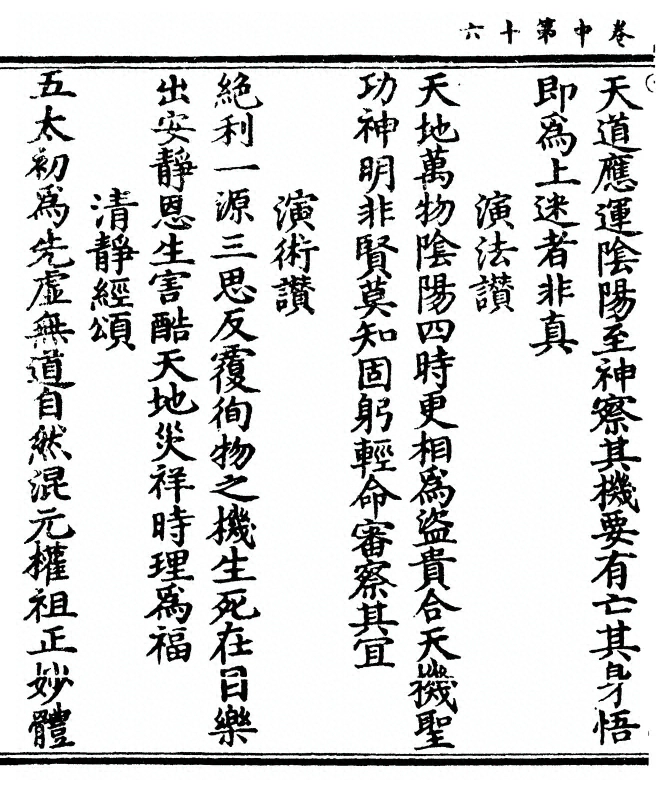 卷中第十六
天道應運陰陽至神察其機要有亡其身悟
即為上迷者非真
演法讃
天地萬物陰陽四時更相為盜貴合天機聖
功神明非賢莫知固躬輕命審察其冝
演術讃
絕利一源三思反覆徇物之機生死在目樂
出安靜恩生害酷天地災祥時理為福
清靜經頌
五太初為先虛無道自然混元權祖正妙體